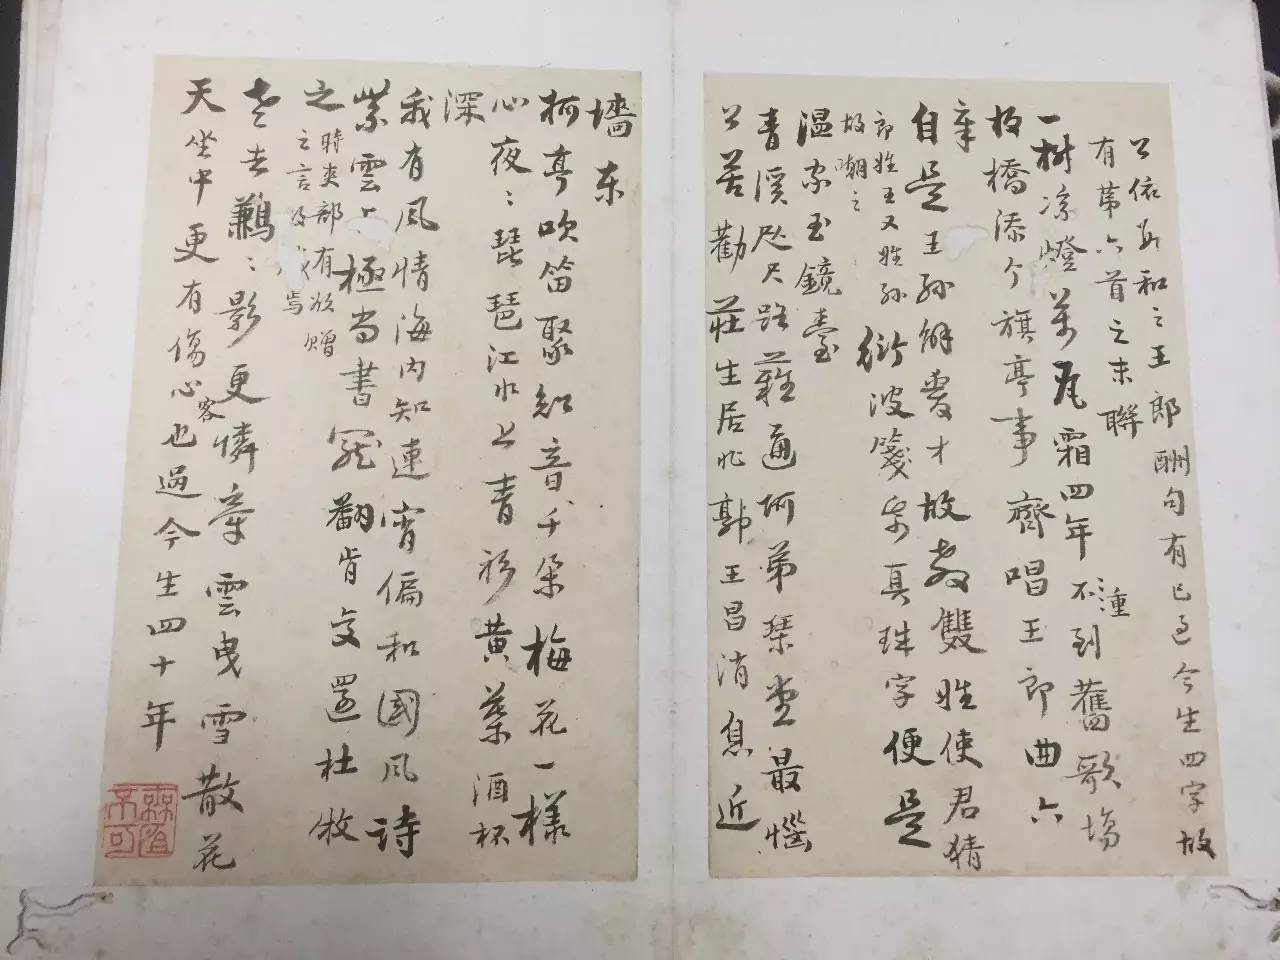 公依韵和之王郎酬句有已過今生四字故
有第六首之末聯
一樹涼燈萬瓦霜四年不到舊歌場
湩
板橋添个旗亭事齊唱王郎曲六
章
自是王孫解愛才故教雙姓使君猜
郎姓王又姓孫
故嘲之
衍波箋紙真珠字便是
溫家玉鏡臺
青溪咫尺路難通阿弟琴堂最惱
公若勸莊生居北郭王昌消息近
墻東
柯亭吹笛聚知音千朵梅花一樣
心夜〻琵琶江水上青衫黃葉酒杯
深
我有風情海內知連宵偏和國風詩
紫雲上極尚書寵翻肯交還杜牧
之
時吏部有欲贈
之言及我焉
老去鶼〻影更憐辛雲曳雪散花
天坐中更有傷心客也過今生四十年